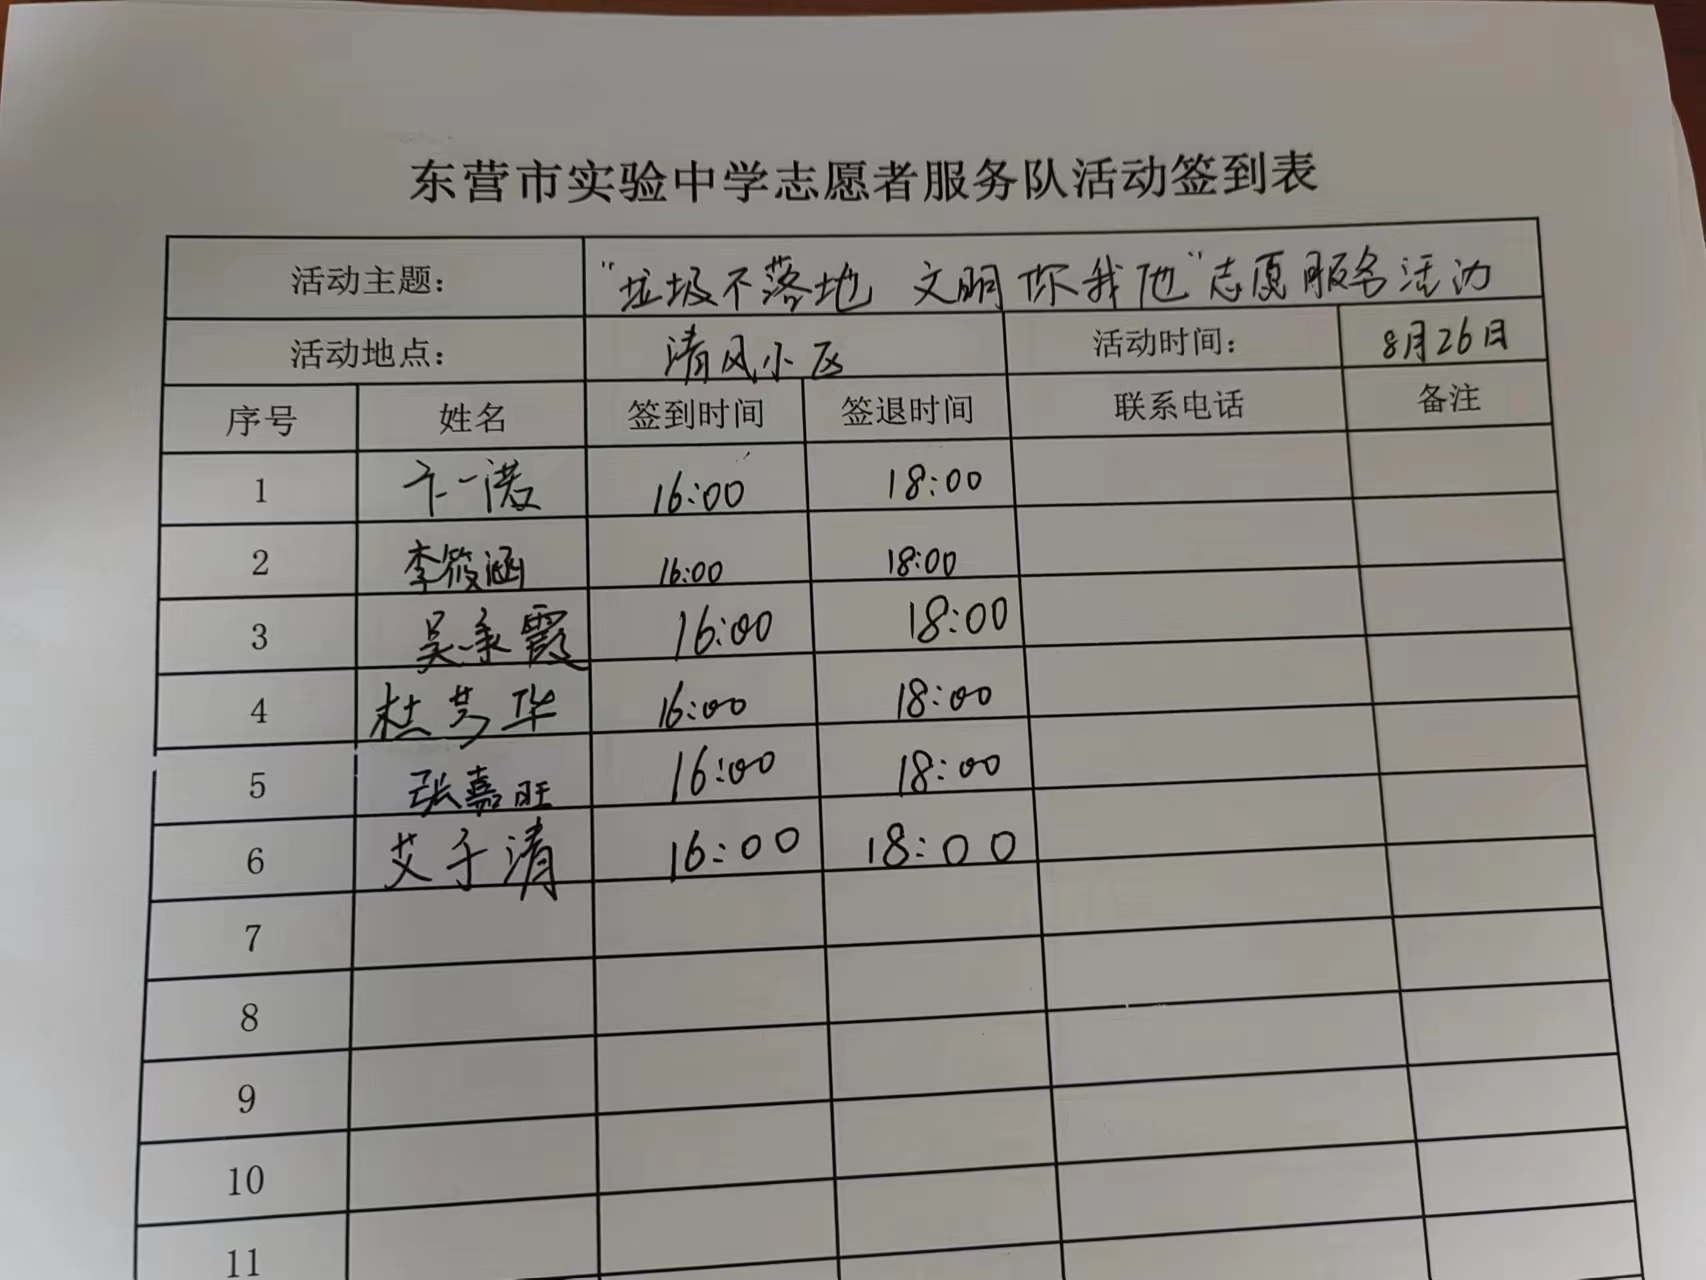 东营市实验中学志愿者服务队活动签到表
活动主题: "垃圾不落地 文明你我他"志愿服务活动
活动地点: 清风小区 活动时间: 8月26日
序号 姓名 签到时间 签退时间 联系电话 备注
1 卞一诺 16:00 18:00
2 李筱涵 16:00 18:00
3 吴永霞 16:00 18:00
4 杜芳华 16:00 18:00
5 张嘉旺 16:00 18:00
6 艾于清 16:00 18:00
7
8
9
10
11